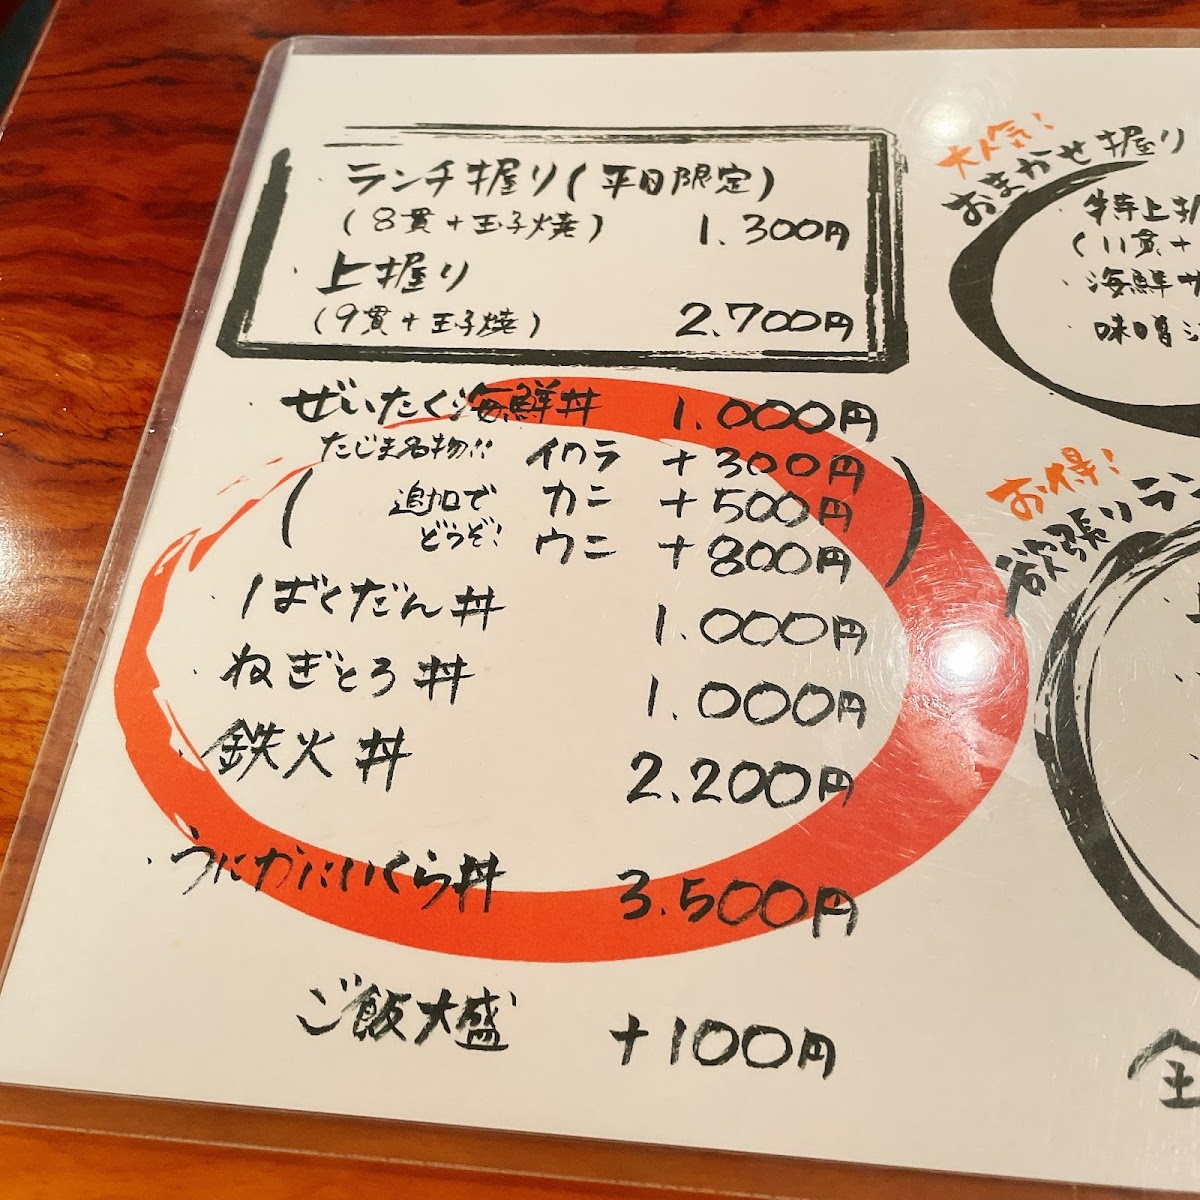 ランチ握り(平日限定)
(8貫+玉子焼) 1.300円
上握り
(9貫+玉子焼) 2.700円
ぜいたく海鮮丼 1.000円
たじま名物!! イクラ +300円
(追加で カニ +500円
どうぞ! ウニ +800円)
ばくだん丼 1.000円
ねぎとろ丼 1.000円
鉄火丼 2.200円
うにかにいくら丼 3.500円
ご飯大盛 +100円
大人気!
おまかせ握り
特上握
(11貫+
海鮮サ
味噌シ
お得!
欲張りラン
全